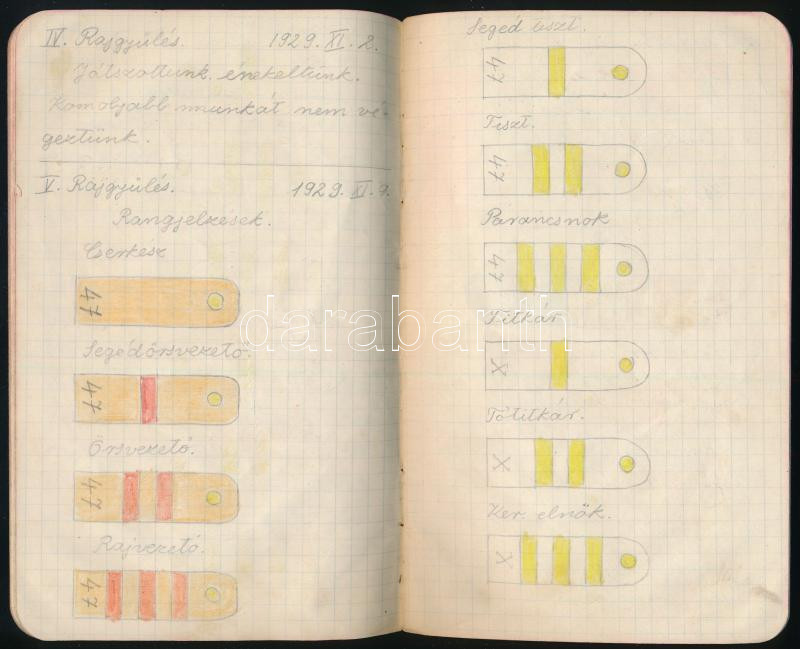 IV. Rajgyülés. 1929. XI. 2.
Játszottunk, énekeltünk.
Komolyabb munkát nem vé-
geztünk.
V. Rajgyülés. 1929. XI. 9.
Rangjelzések.
Cserkész
47
Segédőrsvezető.
47
Őrsvezető.
47
Rajvezető.
47
Segéd tiszt.
47
Tiszt.
47
Parancsnok
47
Titkár.
X
Főtitkár.
X
Ker. elnök.
X
darabanth